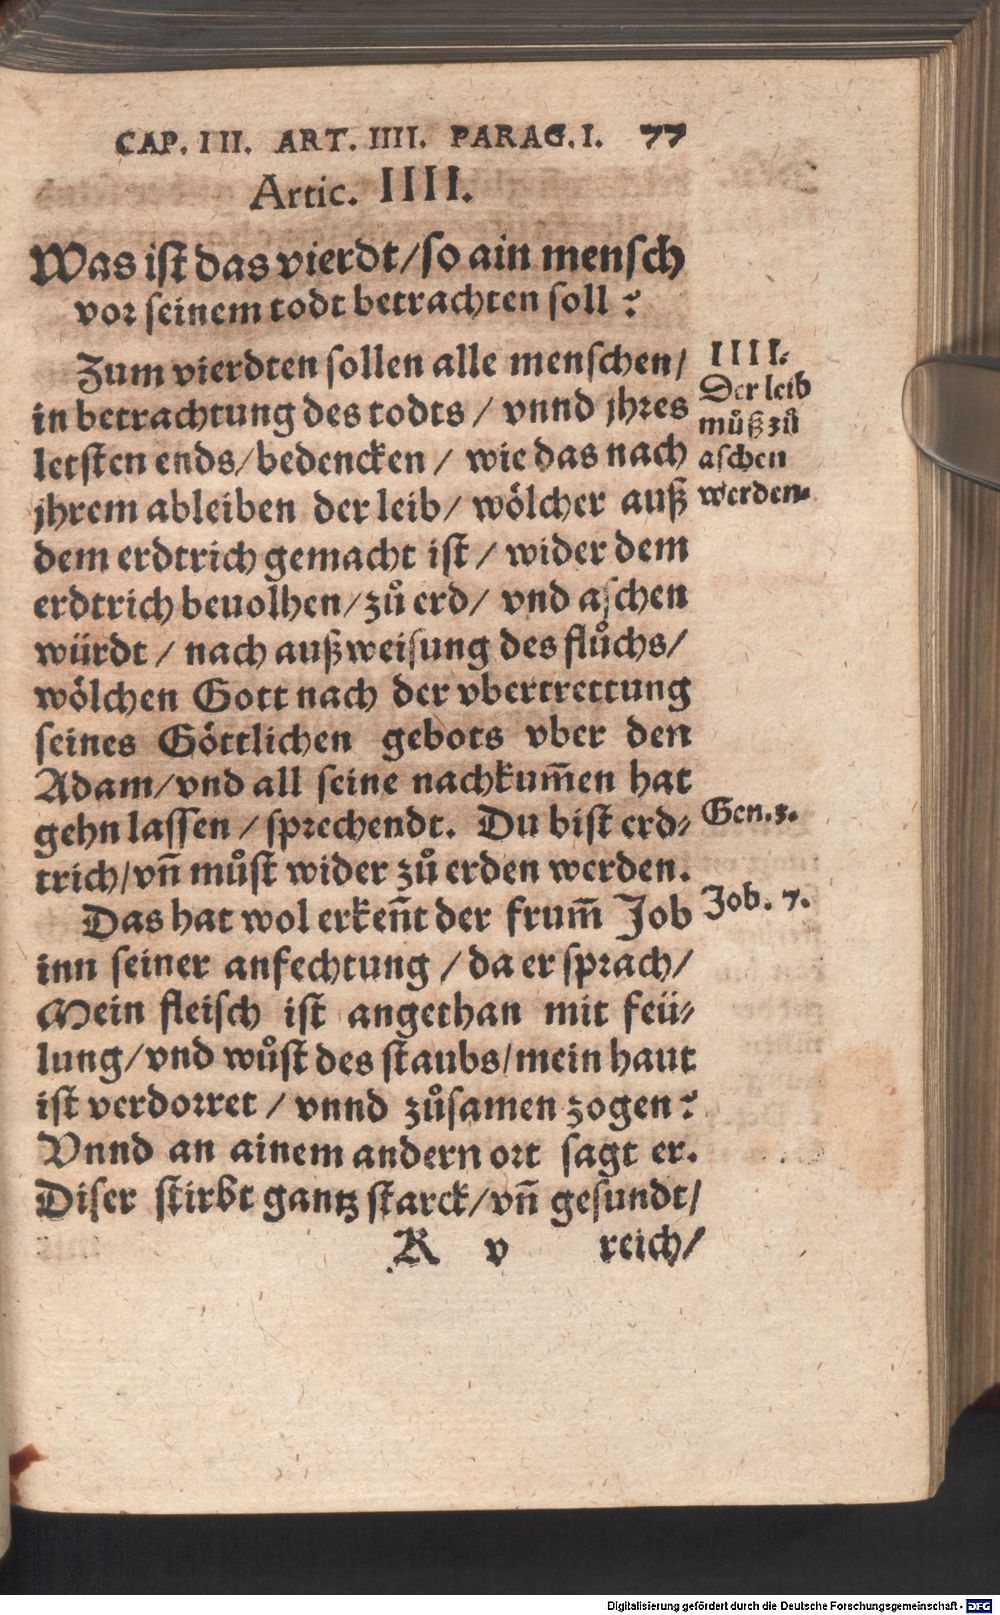 CAP. III. ART. IIII. PARAG. I. 77
Artic. IIII.
Was ist das vierdt/so ain mensch
vor seinem todt betrachten soll?
Zum vierdten sollen alle menschen/
in betrachtung des todts / vnnd jhres
letsten ends/bedencken / wie das nach
jhrem ableiben der leib/ wölcher auß
dem erdtrich gemacht ist / wider dem
erdtrich beuolhen/zů erd/ vnd aschen
würdt / nach außweisung des flůchs/
wölchen Gott nach der vbertrettung
seines Göttlichen gebots vber den
Adam/vnd all seine nachkum̃en hat
gehn lassen / sprechendt. Du bist erd-
trich/vñ můst wider zů erden werden.
Das hat wol erkeñt der frum̃ Job
inn seiner anfechtung / da er sprach/
Mein fleisch ist angethan mit feü-
lung/vnd wůst des staubs/mein haut
ist verdorret / vnnd zůsamen zogen?
Vnnd an ainem andern ort sagt er.
Diser stirbt gantz starck/vñ gesundt/
K v reich/
IIII.
Der leib
můß zů
aschen
werden.
Gen. 3.
Job. 7.
Digitalisierung gefördert durch die Deutsche Forschungsgemeinschaft - DFG